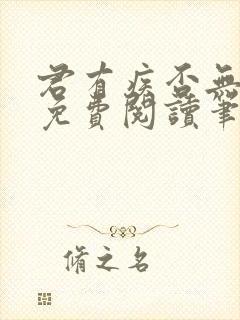 君有疾否無
免費閱讀筆
脩之名